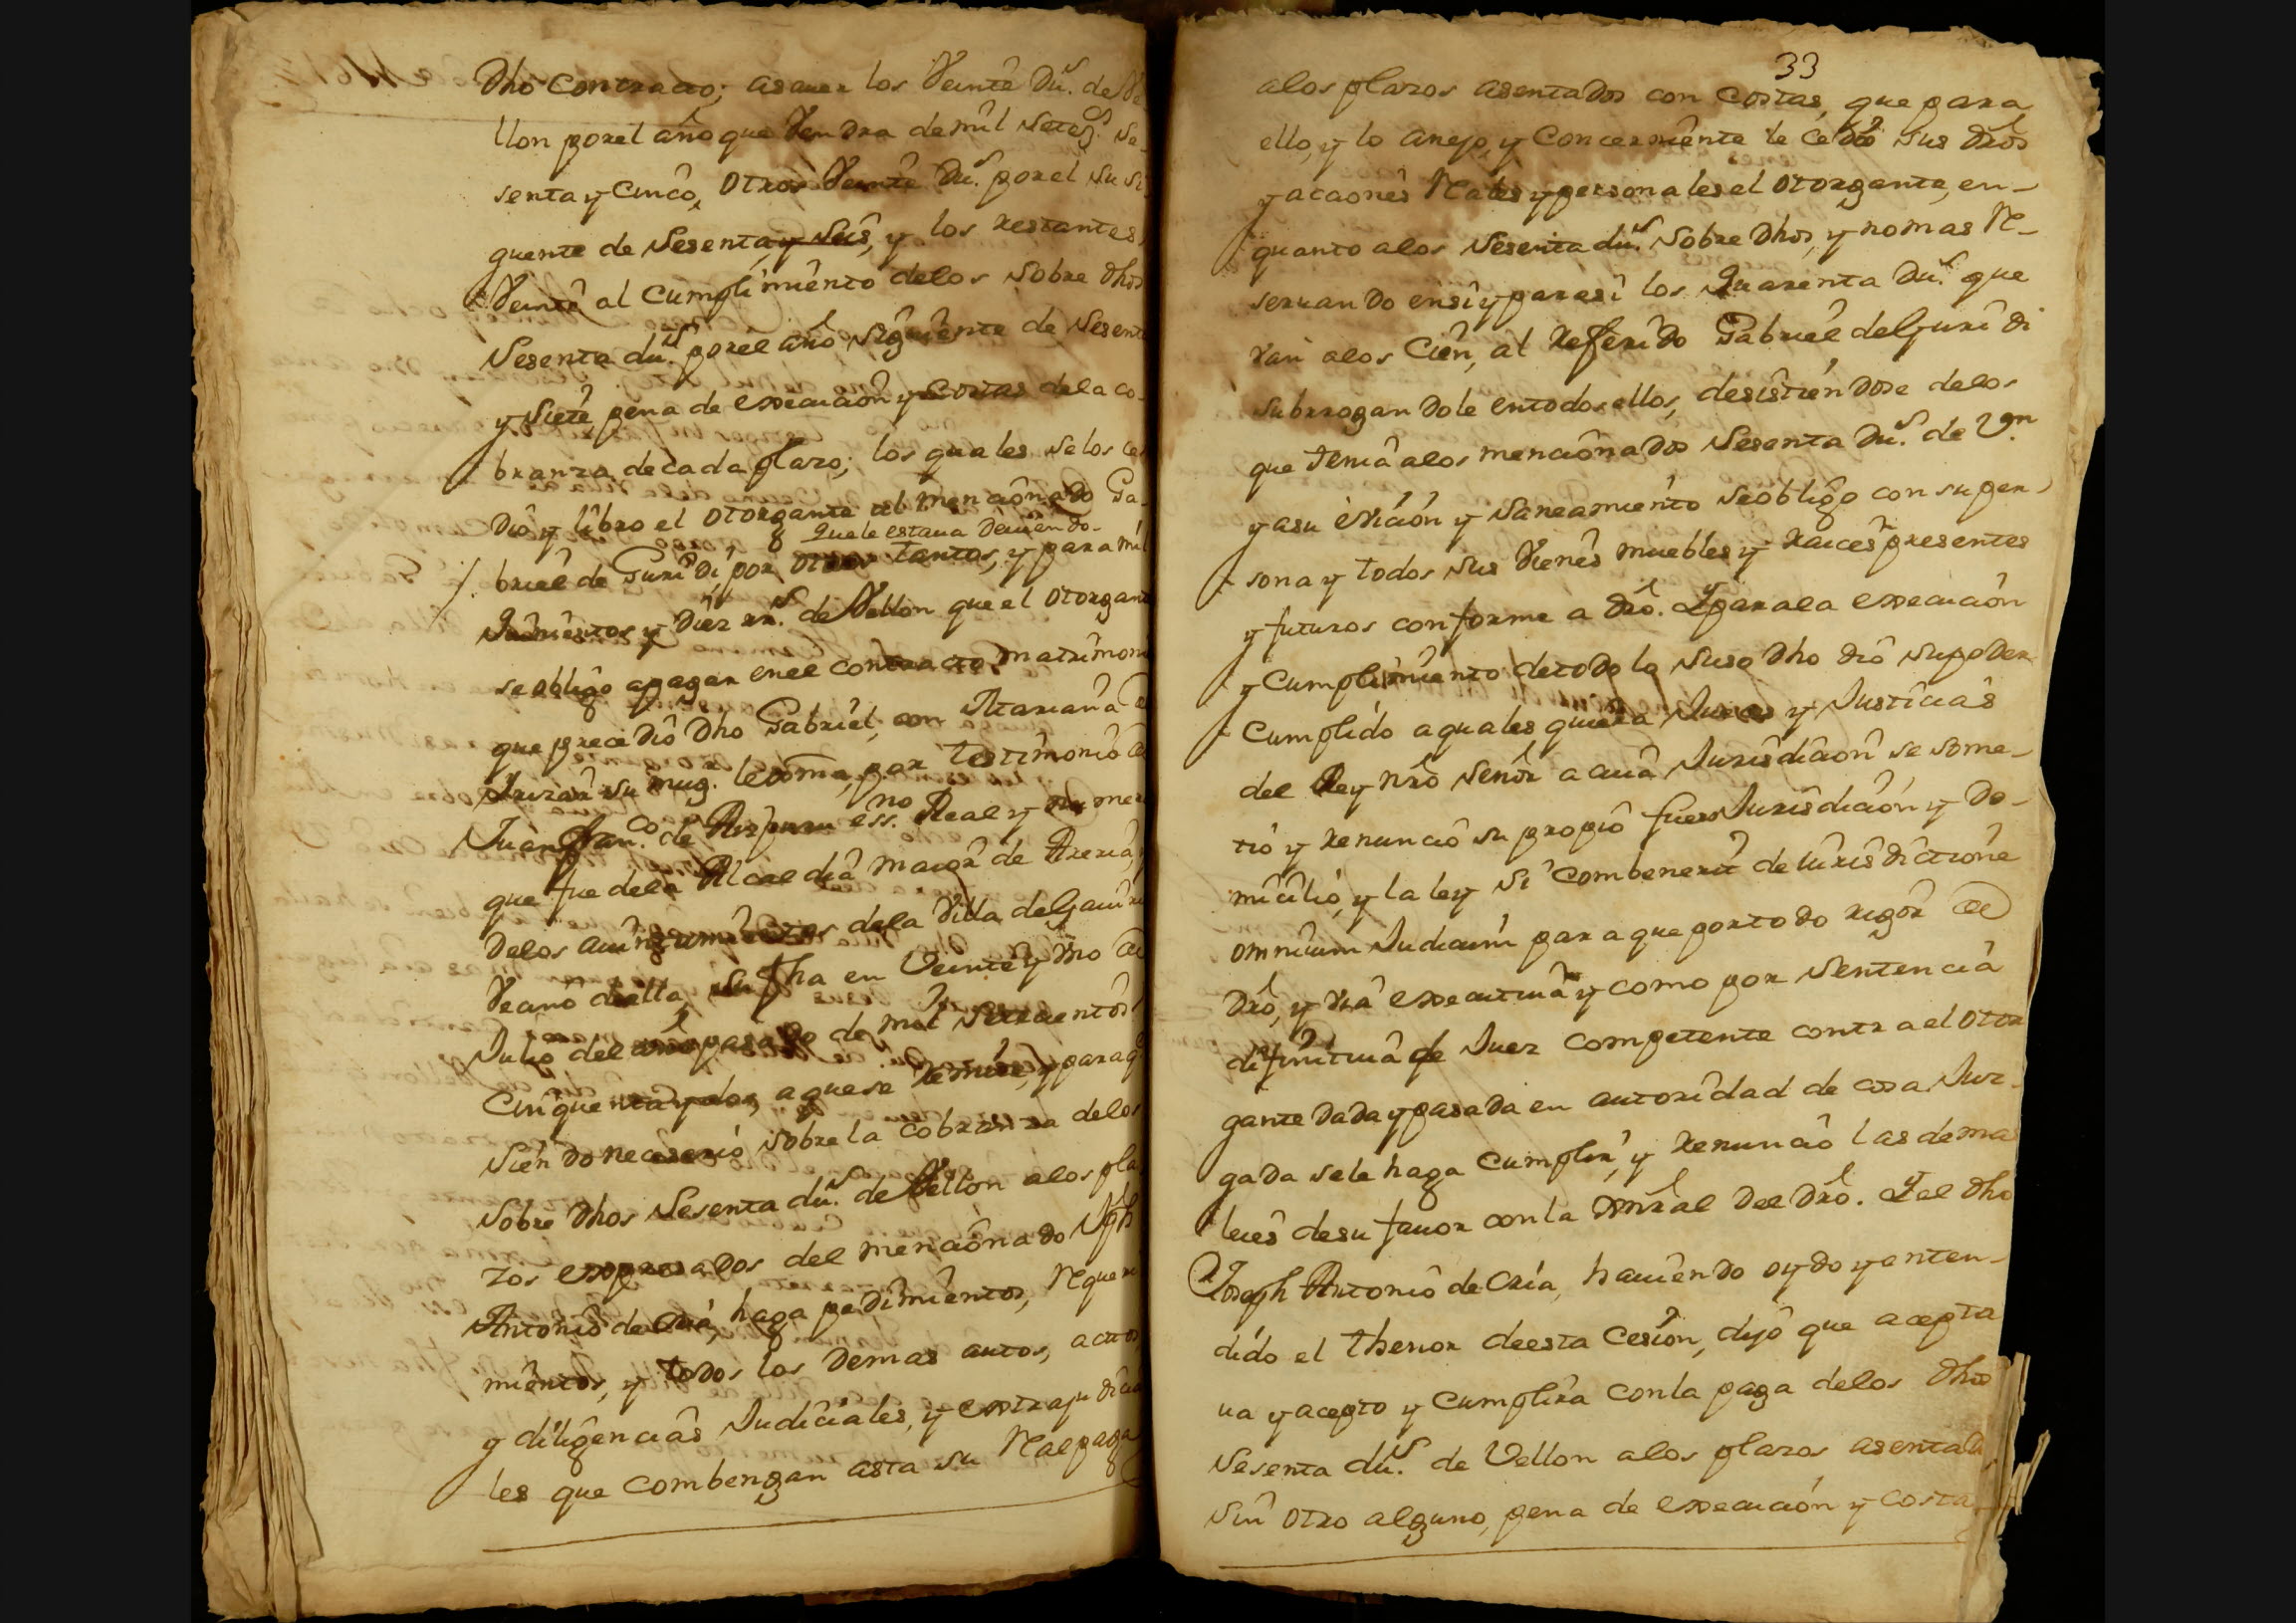 Dho Contracto; asauer los Veinte Du.s de Ve
llon por el año que Vendra de mil Seteз.s Se-
senta y Cinco, Otros Veinte Du.s por el Su si
guente de Sesenta y Seis, y los restantes
Veinte al Cumplimiento delos Sobre dhos
Sesenta du.s por el año siguiente de Sesenta
y Siete, pena de execucion y Costas dela co-
branza de cada plazo; los quales se los ce
dió y libro el Otorgante al mencionado Ga-
que le estaua deuiendo-
briel de Guridi, por Otros tantos, y para mil
Quinientos y Diez rr.s de Vellon que el Otorgan
se obligo apagar en el contracto matrimoni
que precedio Dho Gabriel, con Mariana de
su mug. lexma, por testimonio de
Juan Fran.co de ess.no Real y Numer
que fue dela Alcaldia maior de Areria, y
delos auintamientos dela Villa de Gauiri
Vecino de ella, su fha en Veinte y Vno de
Julio del año pasado de mil Setecientos
Cinquenta y dos, a que se remite, y para q
Siendo necesario sobre la cobranza delos
Sobre dhos Sesenta du.s de Vellon alos pla
zos expresados del mencionado Jph
Antonio de Oria, haga pedimientos, Requeri
mientos, y todos los demas autos, actos,
y diligencias Judiciales, y extrajudicia
les que combengan asta su Real paga
33
alos plazos asentados con Costas, que para
ello, y lo anejo, y Concerniente le cedio sus dros
y acciones Reales y personales el Otorgante, en-
quanto alos Sesenta du.s Sobre Dhos, y no mas Re-
seruando en si y para si los Quarenta Du.s que
van alos Cien, al referido Gabriel de Guridi
Subrrogandole en todos ellos, desistiendose delos
que tenia alos mencionados Sesenta Du.s de Vn
y a su euicion y Saneamiento se obligo con su per-
sona y todos sus Vienes muebles y raices presentes
y futuros conforme a dro. Y para la execucion
y Cumplimiento de todo lo Suso Dho dio su poder
Cumplido a quales quiera Jueces y Justicias
del Rey nro Señor a cuia Jurisdicion se some-
tio y renuncio su propio fuero Jurisdicion y do-
micilio, y la ley Si Combenerit de Jurisdictione
omnium Judicum para que por todo rigor de
dro, y via executiua y como por Sentencia
difinitiua de Juez competente contra el Otor
gante dada y pasada en autoridad de cosa Juz-
gada se le haga Cumplir, y renuncio las demas
leies de su fauor con la gnral del dro. Y el dho
Joseph Antonio de Oria, hauiendo oydo y enten-
dido el thenor de esta Cesion, dijo que acepta
ua y acepto y Cumplira con la paga delos dhos
Sesenta du.s de Vellon alos plazos asentados
Sin otro alguno, pena de execucion y costas